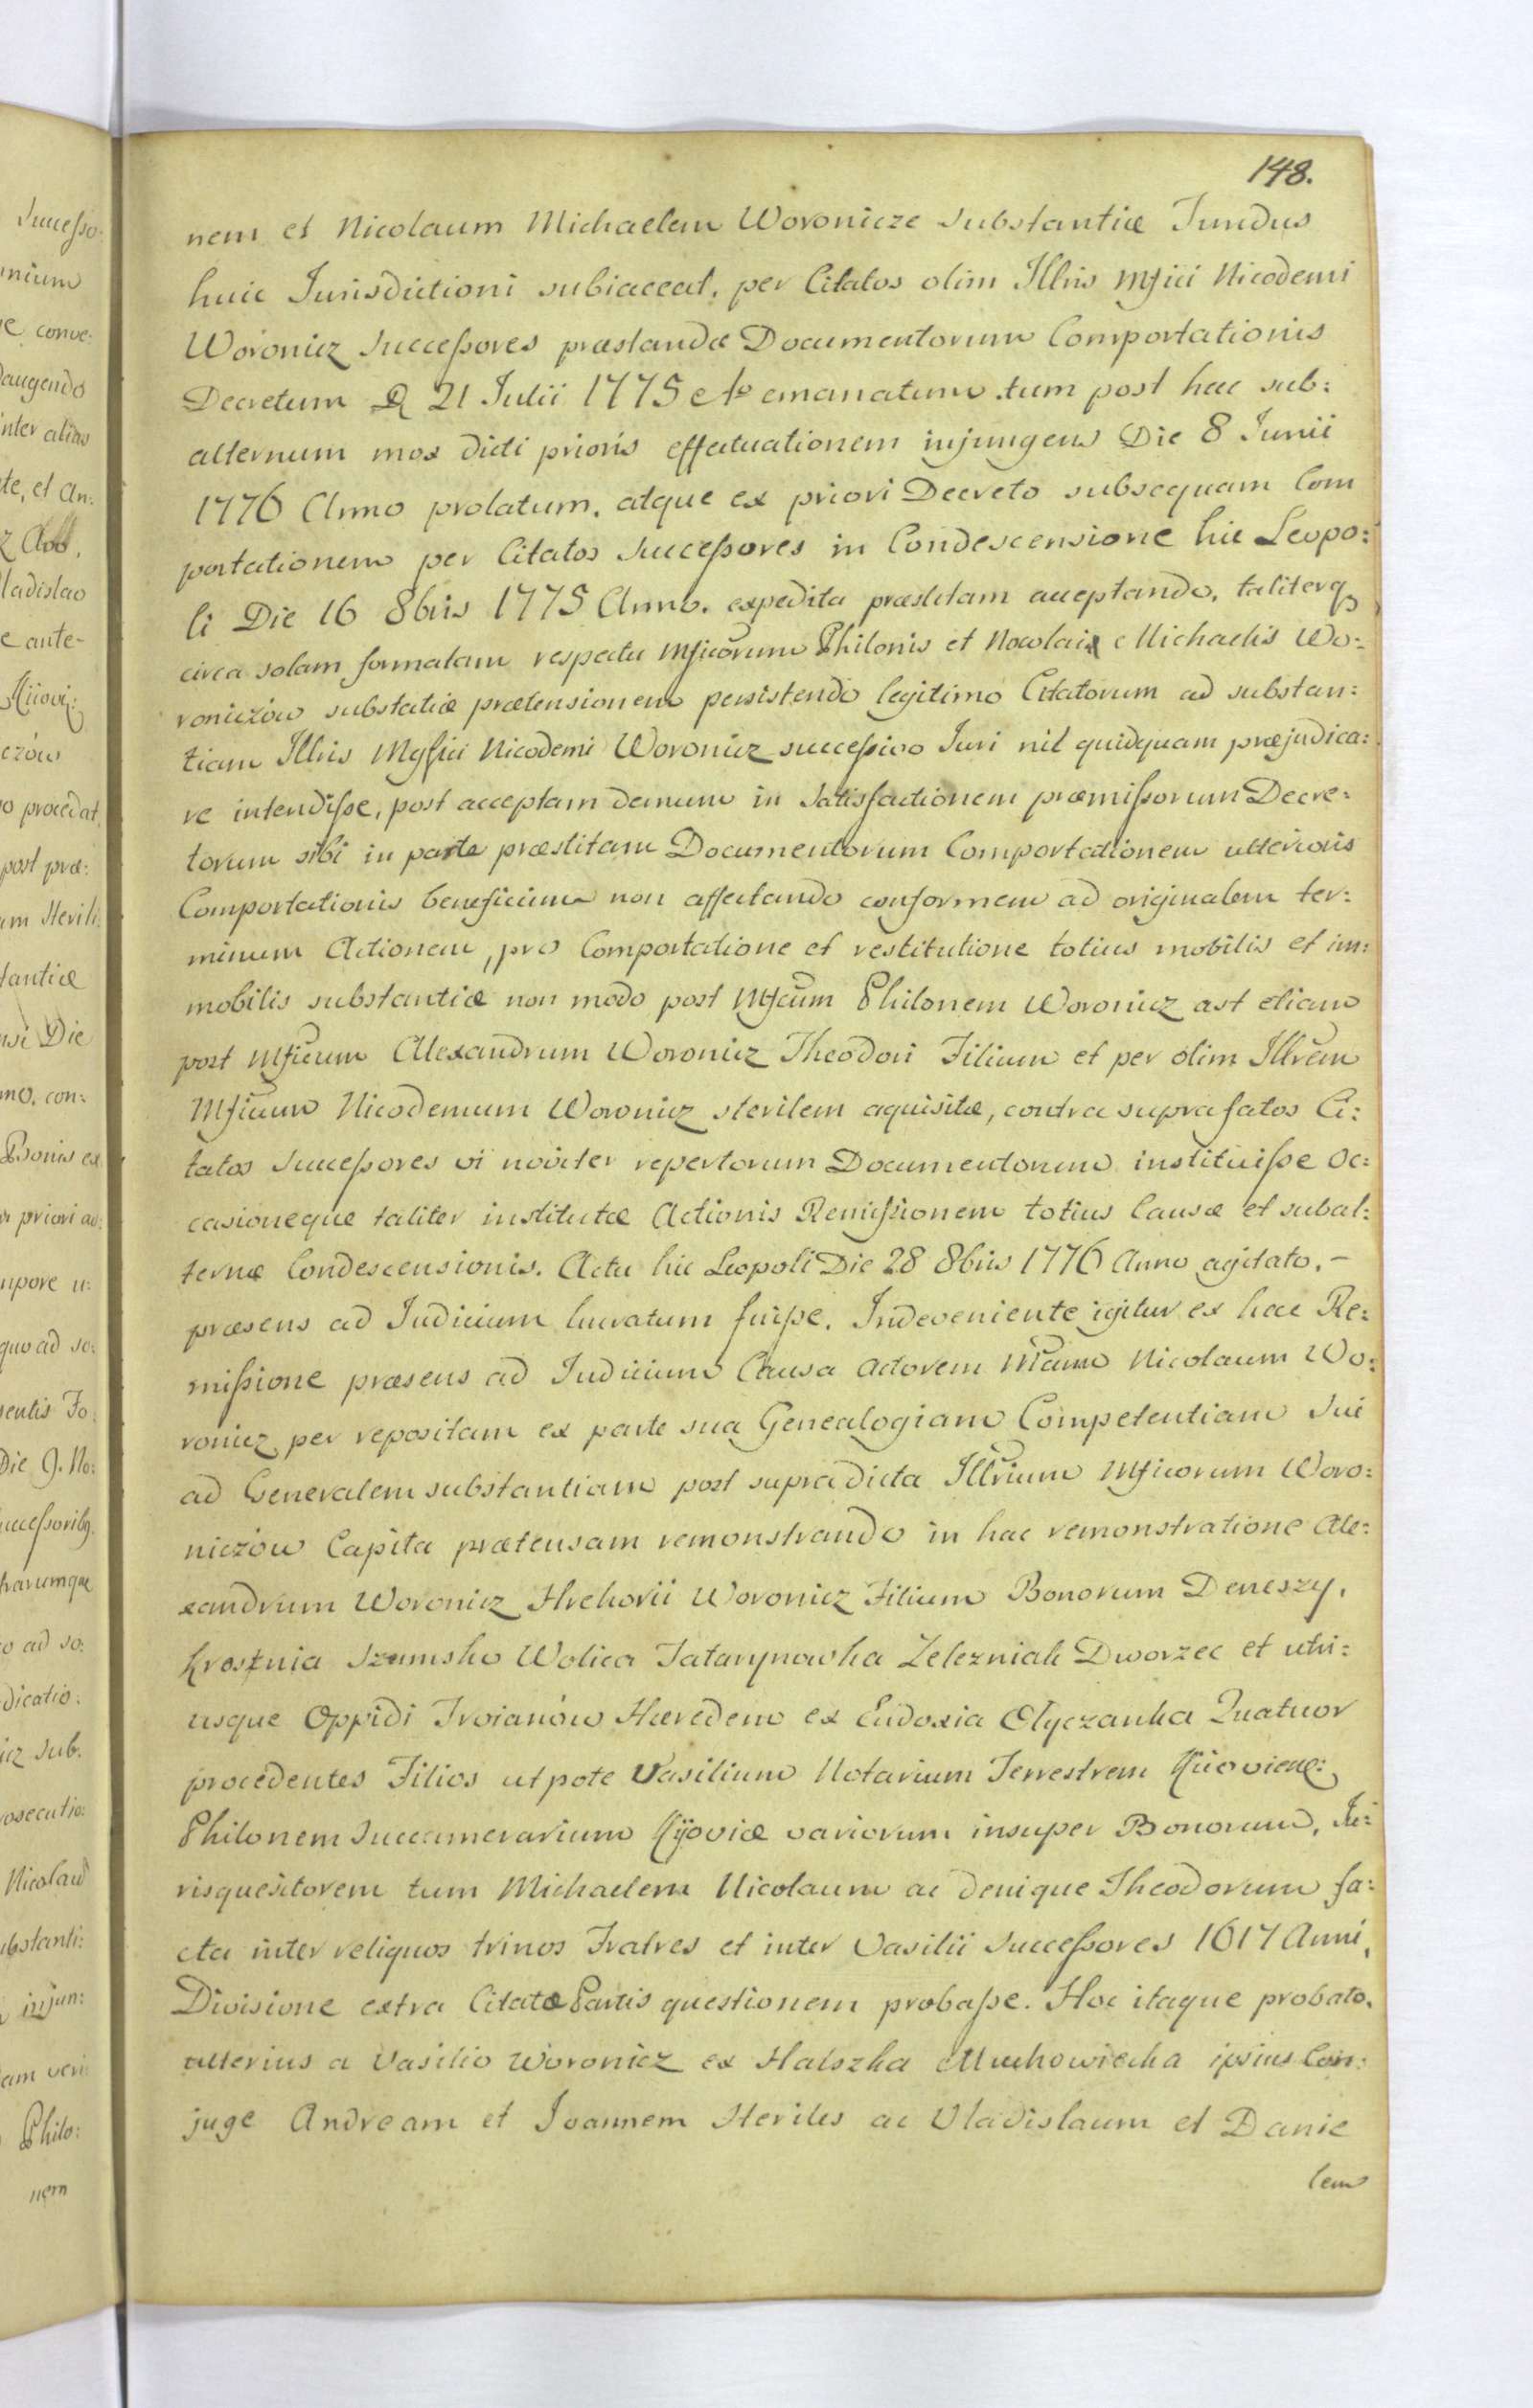 148.
nem et Nicolaum Michaelem Woronicze substantiæ Fundus
huic Jurisdictioni subiaceat, per Citatos olim Illris Mfici Nicodemi
Woronicz Successores præstandæ Documentorum Comportationis
Decretum D 21 Julii 1775 Ao emanatum tum post hac sub:
alternum mox dicti prioris effectuationem injungens Die 8 Junii
1776 Anno prolatum, atque ex priori Decreto subsequam Com
portationem per Citatos Successores in Condescensione hic Leopo:
li Die 16 8bris 1775 Anno. expedita præstitam acceptando, taliterq
circa solam formatam respectu Mficorum Philonis et Nocolai Michaelis Wo:
roniczów substatiæ prætensionem persistendo legitimo Citatorum ad substan:
tiam Illris Mgfici Nicodemi Woronicz successivo Juri nil quidquam præjudica:
re intendisse, post acceptam demum in Satisfactionem præmissorum Decre:
torum sibi in parte præstitam Documentorum Comportationem ulterioris
Comportationis beneficium non affectando conformem ad originalem ter:
minum Actionem, pro Comportatione et restitutione totius mobilis et im:
mobilis substantiæ non modo post Mfcum Philonem Woronicz ast etiam
post Mficum Alexandrum Woronicz Theodori Filium et per olim Illrem
Mficum Nicodemum Woronicz sterilem aquisitæ, contra suprafatos Ci:
tatos Successores vi noviter repertorum Documentorum instituisse oc:
casioneque taliter institutæ Actionis Remissionem totius Causæ et subal:
ternæ Condescensionis. Actu hic Leopoli Die 28 8bris 1776 Anno agitato. -
præsens ad Judicium lucratum fuisse. Indeveniente igitur ex hac Re:
missione præsens ad Judicium Causa Actorem Nicolaum Wo:
ronicz per repositam ex parte sua Genealogiam Competentiam Sui
ad Generalem substantiam post supradicta Illrium Mficorum Woro:
niczów Capita prætensam remonstrando in hac remonstratione Ale:
xandrum Woronicz Hrehorii Woronicz Filium Bonorum Deneszy,
Krosznia Szumsko Wolica Tatarynowka Zelezniak Dworzec et utri:
usque Oppidi Troianów Hæredem ex Eudoxia Olyczanka Quatuor
procedentes Filios utpote Vasilium Notarium Terrestrem Kiioviens:
Philonem Succamerarium Kijoviæ variorum insuper Bonorum, Ju:
risquesitorem tum Michaelem Nicolaum ac denique Theodorum fa:
cta inter reliquos trinos Fratres et inter Vasilii Successores 1617 Anni,
Divisione extra Citatæ Partis questionem probasse. Hoc itaque probato,
ulterius a Vasilio Woronicz ex Halszka Muchowiecka ipsius Con:
juge Andream et Joannem Steriles ac Vladislaum et Danie
lem